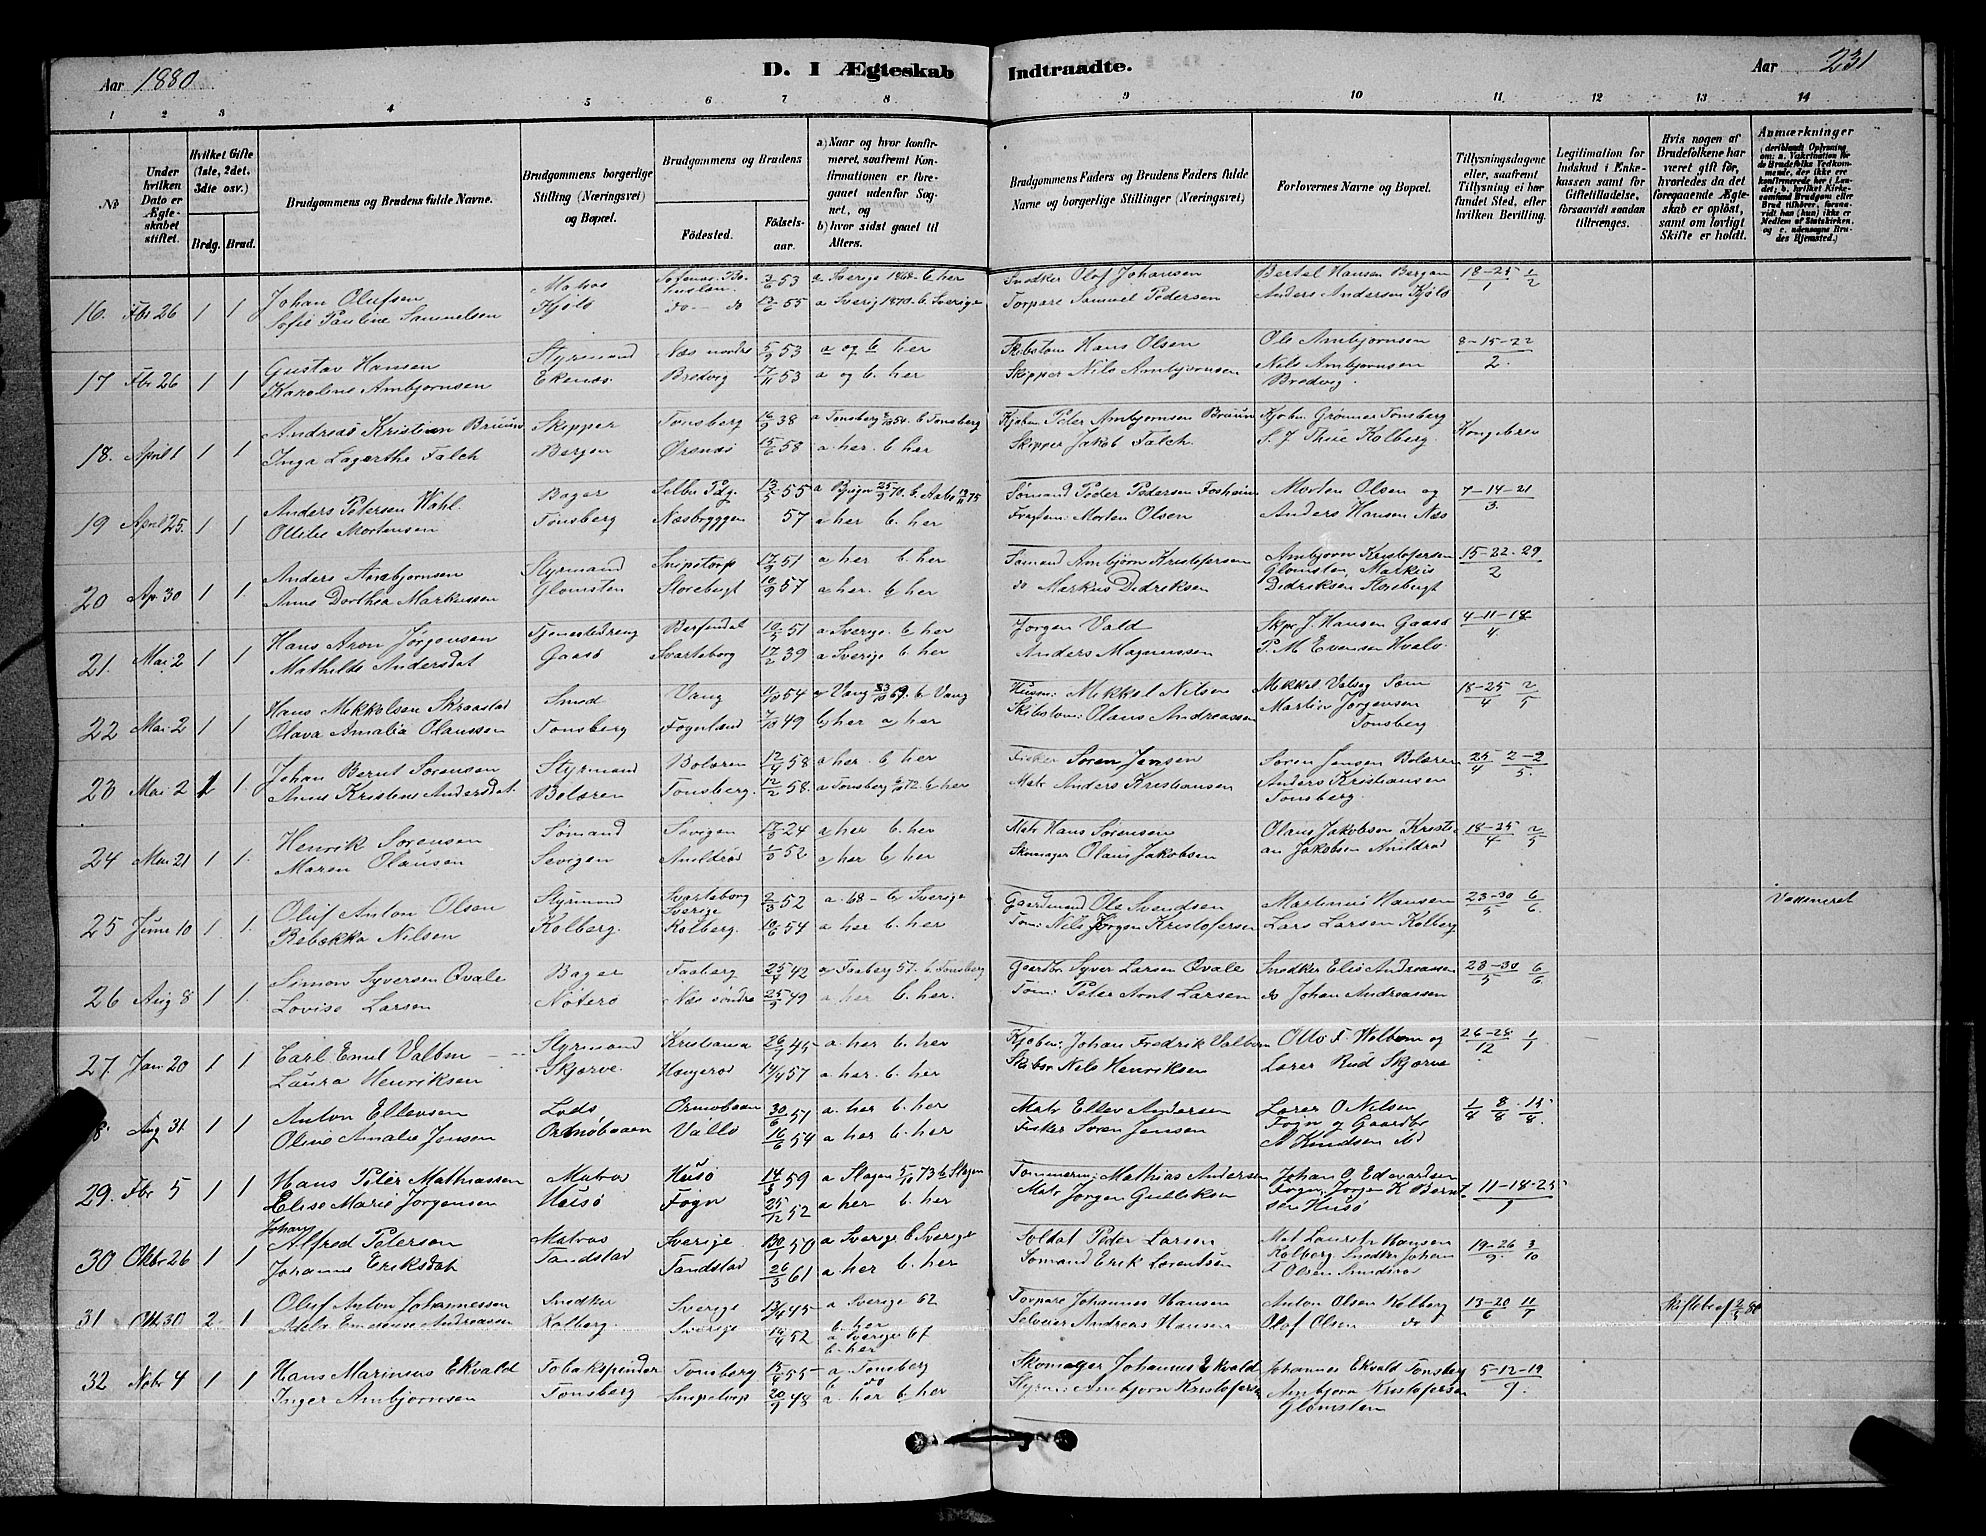 Aar 1880
D. I Ægteskab Indtraadte.
Aar 231
1 2 3 4 5 6 7 8 9 10 11 12 13 14
No
Under hvilken Dato er Ægteskabet stiftet.
Hvilket Gifte (1ste, 2det, 3die osv.)
Brdg. Brud.
Brudgommens og Brudens fulde Navne.
Brudgommens borgerlige Stilling (Næringsvei) og Bopæl.
Brudgommens og Brudens
Fødested. Fødselsaar.
a) Naar og hvor konfirmeret, saafremt Konfirmationen er foregaaet udenfor Sognet, og
b) hvor sidst gaaet til Alters.
Brudgommens Faders og Brudens Faders fulde Navne og borgerlige Stillinger (Næringsvei)
Forlovernes Navne og Bopæl.
Tillysningsdagene eller, saafremt Tillysning ei har fundet Sted, efter hvilken Bevilling.
Legitimation for Indskud i Enkekassen samt for Giftetilladelse, forsaavidt saadan tiltrænges.
Hvis nogen af Brudefolkene har været gift før, hvorledes da det foregaaende Ægteskab er opløst, samt om lovligt Skifte er holdt.
Anmærkninger
16. Fbr 26 1 1 Johan Olufsen Matros 2/6 53 a Sverige 1868 b. her Snedker Olof Johansen Bertel Hansen Bergan 18-25/1 1/2
Sofie Pauline Samuelsen Kjølø do do 12/6 55 a Sverig 1870 b. Sverige Torpare Samuel Pedersen Anders Andersen Kjølø
17 Fbr 26 1 1 Gustav Hansen Styrmand Næs nordre 5/9 53 a og b her Skibstøm Hans Olsen Ole Ambjørnsen 8-15-22/2.
Karoline Ambjørnsen Ekenæs Bredvig 17/11 53 a og b. her Skipper Nils Ambjørnsen Nils Ambjørnsen
Bredvig.
18. April 1 1 1 Andreas Kristian Bruun Skipper Tønsberg 16/9 38 a Tønsberg 54 b Tønsberg Kjøbm Peter Ambjørnsen Bruun Kjøbm. Grønner Tønsberg
Inga Lagerthe Falch Bergen Ørsnes 15/6 58 a. her. b. her Skipper Jakob Falch. S. J. Thue Kolberg. Kongebrev
19 April 25. 1 1 Anders Petersen Wahl. Bager Selbu Pdg. 13/5 55 Sømand Peder Pedersen Morten Olsen og 7-14-21/3.
Ottilie Mortensen Tønsberg Næsbryggen 57 a her b. her Morten Olsen Anders Hansen Næs
20 Ap. 30 1 1 Anders Ambjørnsen Styrmand Snipetorp 17/9 51 a her b. her Sømand Ambjørn Kristofersen Ambjørn Kristofersen 15-22-29/2
Anne Dorthea Markussen Glomsten Storebugt 10/9 57 a her. b her do Markus Didriksen Glomsten, Markus
Didriksen Storebugt
21. Mai 2 1 1 Hans Aron Jørgensen Tjenestedreng 51 a Sverige. b her Jørgen Vald Skpr J. Hansen Gaasø 4-11-18/4.
Mathilde Andersdat Gaasø Svarteborg 17/2 39 a Sverige b. her Anders Magnussen P. M Evensen Hvalø
22 Mai 2 1 1 Hans Mekkelsen Skraastad Smed Vang 54 a Vang 69. b Vang Husm: Mekkel Nilsen Mekkel Vang 18-25/4 2/5
Olava Amalia Olaussen Tønsberg Føgnland 49 b her a her Skibstøm: Olaus Andreassen Martin Jørgensen
Tønsberg
23 Mai 2 1 1 Johan Bernt Sørensen Styrmand Bolæren 12/4 58 a her. b. her Fisker Søren Jensen Søren Jensen Bolæren 25/4 2-2/5.
Anne Kristine Andersdat Bolæren Tønsberg. 12/2 58. a Tønsberg 72. b her Matr Anders Kristiansen Anders Kristiansen
Tønsberg.
24 Mai 21 1 1. Henrik Sørensen Sømand Sevigen 24 a her b. her Matr Hans Sørensen Olaus Jakobsen Kristi- 18-25/4 2/5
Maren Olausen Sevigen 52 a her b her Skomager Olaus Jakobsen an Jakobsen
25 Juni 10 1. 1. Oluf Anton Olsen Styrmand Svarteborg Sverige 2/3 52 a. 68 - b Sverige Gaardmand Ole Svendsen Martinius Hansen 23-30/5 6/6. Vaksineret
Rebækka Nilsen Kolberg. Kolberg. 54 a her b. her Tøm: Nils Jørgen Kristofersen Lars Larsen Kolberg
26 Aug 8 1 1. Simon Syversen Qvale Bager Faaberg 42 a Faaberg 57. b. Tønsberg Gaardbr Syver Larsen Qvale Snedker Elis Andreassen 23-30/5 6/6.
Lovise Larsen Nøterø Næs søndre 25/9 49 a her b. her. Tøm: Peter Arnt Larsen do Johan Andreassen
27. Jan 20 1 1 Carl Emil Valbom Styrmand Kristiania 45 a. her b. her Kjøbm: Johan Fredrik Valbom Otto F. Walbom og 26-28/12 1/1
Laura Henriksen Skjærve. Haugerød 14/4 57 a her. b. her Skibsr Nils Henriksen Lærer Rød Skjærve
8. Aug 31 1 1 Anton Ellevsen Lods, 30/6 51 a. her b. her Matr Ellev Andersen Lærer O Nilsen 1/8 8/8 15/8.
Oline Amalie Jensen Vallø 16/6 54 a her b. her Fisker Søren Jensen Føgn og Gaardbr
A Knudsen
29. Fbr 5 1 1 Hans Peter Mathiassen Matros Husø 14/3 59 a Slagen 73 b. Slagen Tømmerm: Mathias Andersen Johan G Edevardsen
Elise Marie Jørgensen Husø Føgn 25/12 52 a her b. her Matr Jørgen Gulliksen Føgn, Jørgen K Bernt- 11-18-25/1
sen Husø
30 Oktbr 26 1 1 Johan Alfred Peterson Matros Sverige 50 a Sverige b Sverige Soldat Peder Larsen Mat Laurits Hansen 19-26/9. 3/10
Johanne Eriksdat Tandstad Tandstad 26/5 61 a her b. her Sømand Erik Lorentsen Kolberg Snedker Johan
Olsen
31 Okt 30 2 1 Oluf Anton Johannessen Snedker Sverige 45 a Sverige 62 Torpare Johannes Hansen Anton Olsen Kolberg 13-20/6 11/7 Skiftebrev 80
b. her
Andreassen Kolberg. Sverige 52 a Sverige 67 Andreas Hansen Olof Olsen do
b. her
32 Nobr 4 1 1 Hans Marinius Ekvald Tobakspinder Tønsberg 55 a. Tønsberg Skomager Johannes Ekvald Johannes Ekvald Tønsberg 5-12-19/9.
b do
Inger Ambjørnsen Tønsberg Snipetorp 20/9 48 a. her b. her Styrm: Ambjørn Kristofersen Ambjørn Kristofersen
Glomsten